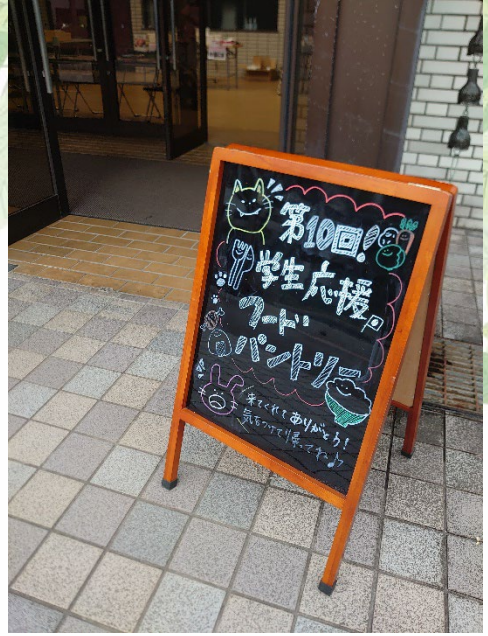 第10回!
学生応援
フード
パントリー
来てくれてありがとう!
気をつけて帰ってね♪